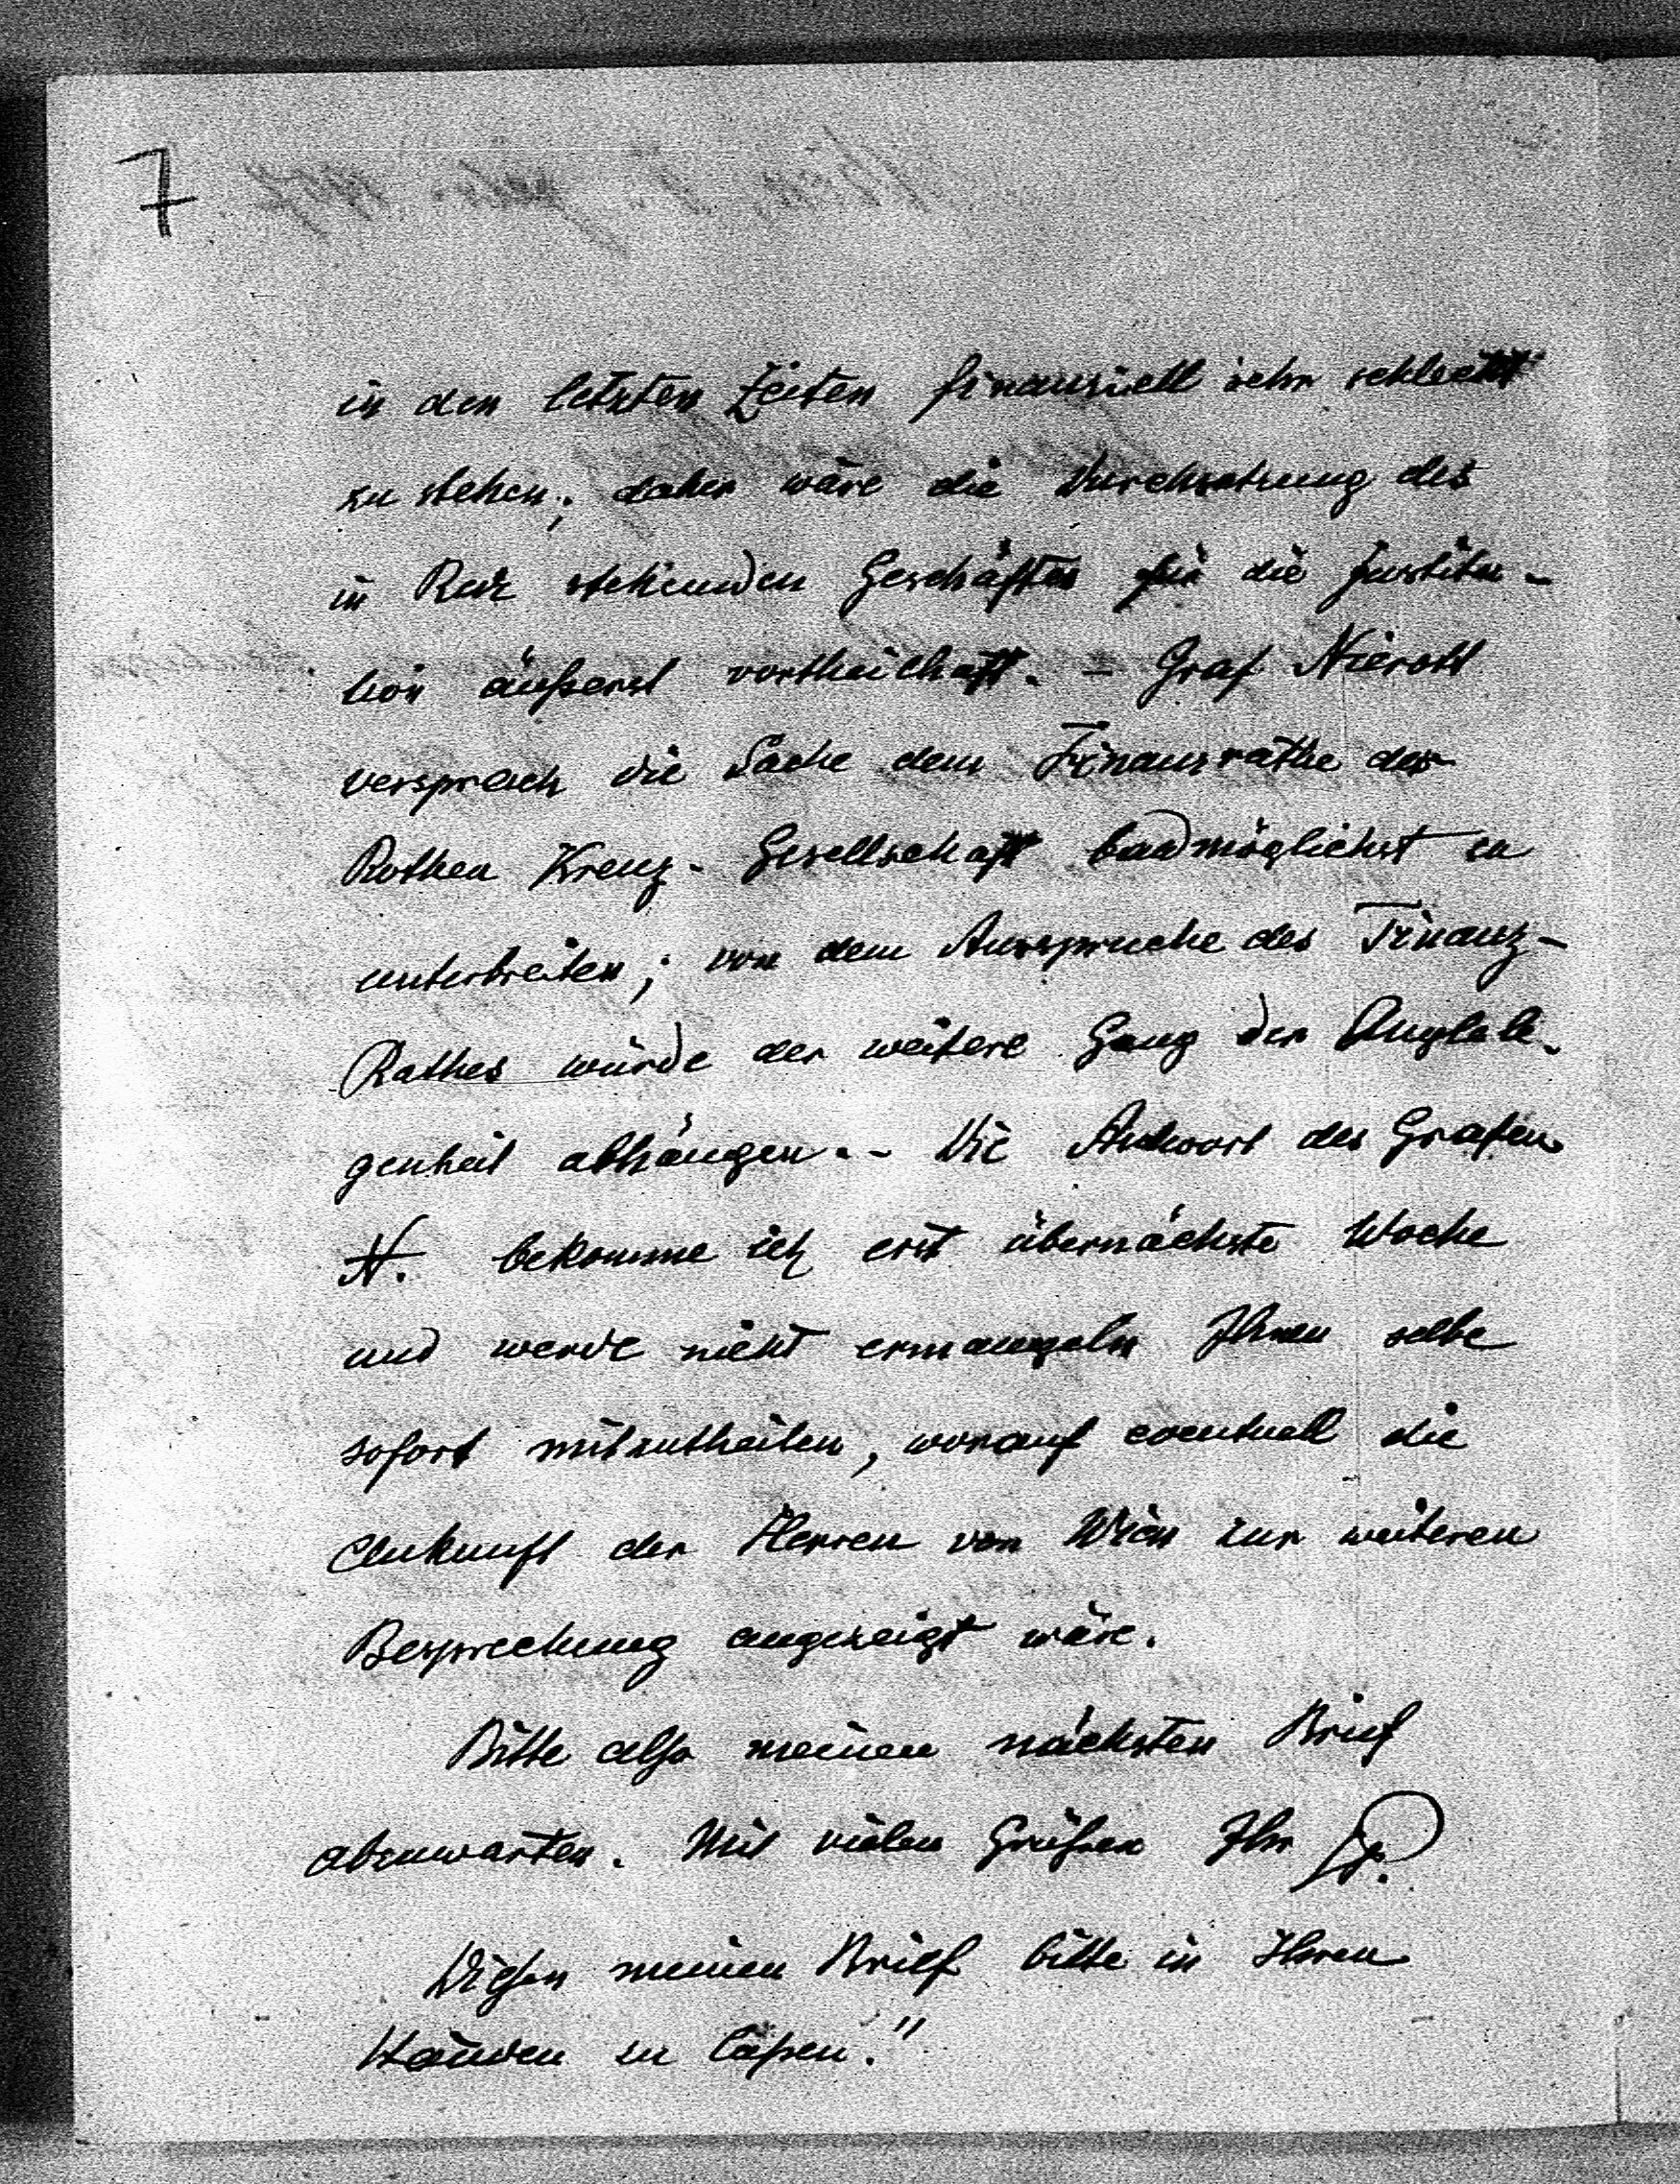 7
in den letzten Zeiten finanziell sehr schlecht
zu stehen; daher wäre die Durchsetzung des
in Rede stehenden Geschäftes für die Institu-
tion äußerst vortheilhaft. – Graf Nierott
versprach die Sache dem Finanzrathe der
Rothen Kreuz-Gesellschaft baldmöglichst zu
unterbreiten; von dem Ausspruche des Finanz-
Rathes würde der weitere Gang der Angele-
genheit abhängen. – Die Antwort des Grafen
N. bekomme ich erst übernächste Woche
und werde nicht ermangeln Ihnen selbe
sofort mitzutheilen, worauf eventuell die
Ankunft der Herren von Wien zur weiteren
Besprechung angezeigt wäre.
Bitte also meinen nächsten Brief
abzuwarten. Mit vielen Grüßen Ihr
Diesen meinen Brief bitte in Ihren
Händen zu laßen."